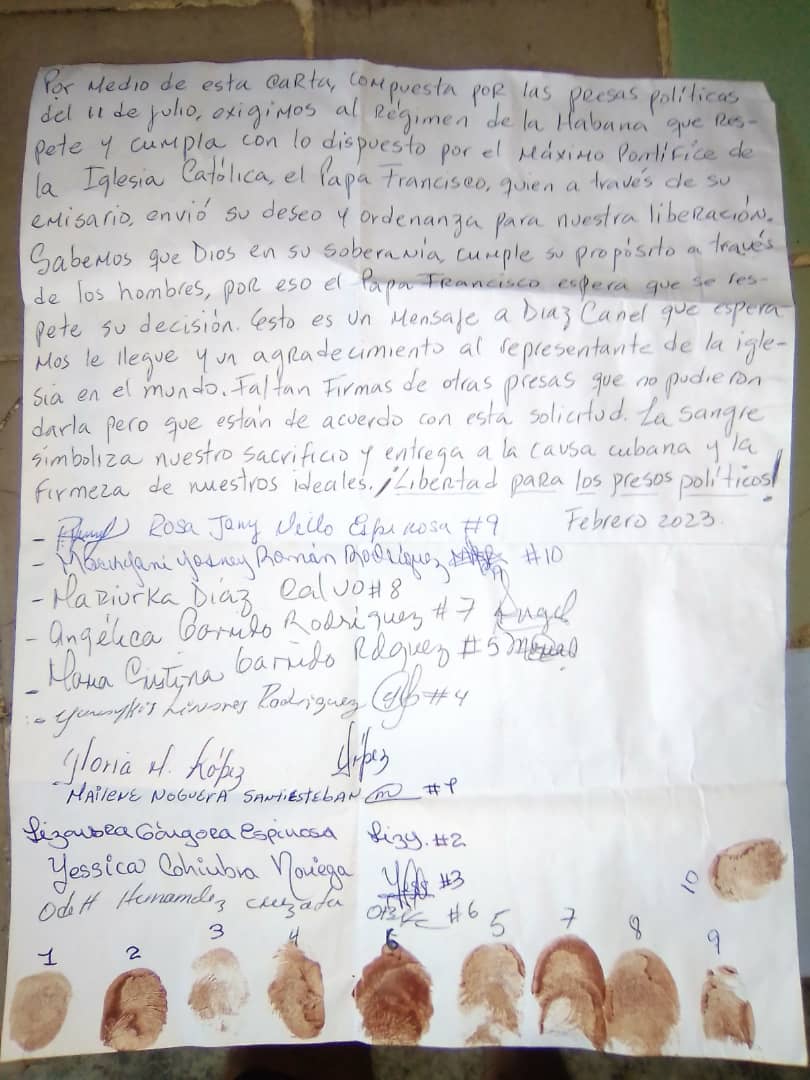 Por Medio de esta carta, compuesta por las presas políticas
del 11 de julio, exigimos al Régimen de la Habana que Res-
pete y cumpla con lo dispuesto por el Máximo Pontífice de
la Iglesia Católica, el Papa Francisco, quien a través de su
emisario, envió su deseo y ordenanza para nuestra liberación.
Sabemos que Dios en su soberanía, cumple su propósito a través
de los hombres, por eso el Papa Francisco espera que se res-
pete su decisión. Esto es un mensaje a Díaz Canel que espera
mos le llegue y un agradecimiento al representante de la igle-
sia en el mundo. Faltan Firmas de otras presas que no pudieron
darla pero que están de acuerdo con esta solicitud. La sangre
simboliza nuestro sacrificio y entrega a la causa cubana y la
firmeza de nuestros ideales. ¡Libertad para los presos políticos!
Febrero 2023.
- Rosa Jany Millo Espinosa #9
- Yosney Román Rodríguez #10
- Maziurka Díaz Calvo #8
- Angélica Garrido Rodríguez #7 Angel
- María Cristina Garrido Rdguez #5
- Linares Rodriguez #4
Gloria M. López López
MAILENE NOGUERA SANTIESTEBAN #1
Lizandra Góngora Espinosa Lizy. #2
Yessica Cohiubra Noriega Yess #3
Odett Hernamdez cruzata #6
1 2 3 4 6 5 7 8 9 10